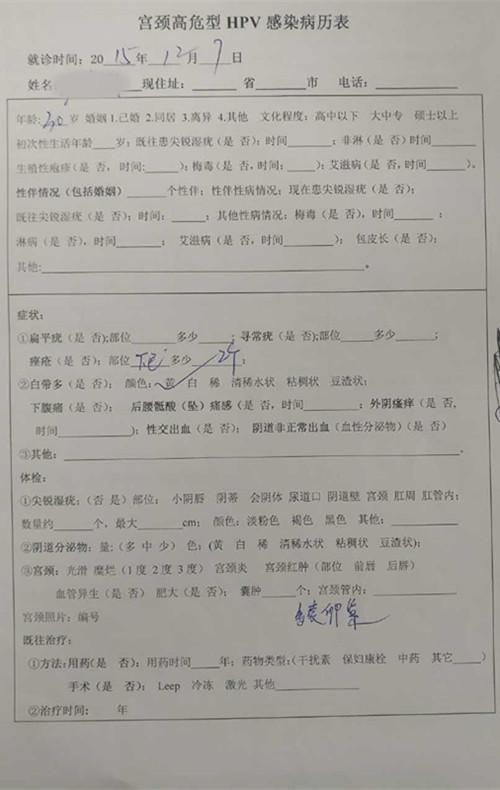 宫颈高危型 HPV 感染病历表
就诊时间：2015年12月7日
姓名 现住址：______ 省______市 电话：__________
年龄:30岁 婚姻 1.已婚 2.同居 3.离异 4.其他 文化程度：高中以下 大中专 硕士以上
初次性生活年龄____岁；既往患尖锐湿疣（是 否）；时间______；非淋（是 否）时间______
生殖性疱疹（是 否，时间:______）；梅毒（是 否，时间：______）；艾滋病（是 否，时间______）。
性伴情况（包括婚姻）______个性伴；性伴性病情况；现在患尖锐湿疣（是 否）；
既往尖锐湿疣（是 否）；时间：______；其他性病情况：梅毒（是 否），时间______；
淋病（是 否），时间______； 艾滋病（是 否），时间______）； 包皮长（是 否）；
其他:____________________。
症状：
①扁平疣（是 否）;部位______多少______；寻常疣（是 否）;部位______多少______；
痤疮（是 否）；部位 多少______；
②白带多（是 否）； 颜色：黄 白 稀 清稀水状 粘稠状 豆渣状；
下腹痛（是 否）； 后腰骶酸（坠）痛感（是 否，时间______）；外阴瘙痒（是 否，
时间__________）；性交出血（是 否）； 阴道非正常出血（血性分泌物）（是 否）
③其他：____________________。
体检：
①尖锐湿疣；（否 是）部位： 小阴唇 阴蒂 会阴体 尿道口 阴道壁 宫颈 肛周 肛管内；
数量约______个，最大______cm； 颜色：淡粉色 褐色 黑色 其他：__________
②阴道分泌物：量:（多 中 少） 色：（黄 白 稀 清稀水状 粘稠状 豆渣状）；
③宫颈：光滑 糜烂（1度 2度 3度） 宫颈炎 宫颈红肿（部位 前唇 后唇）
血管异生（是 否） 肥大（是 否）； 囊肿____个；宫颈管内：__________
宫颈照片：编号 多囊卵巢
既往治疗：
①方法：用药（是 否）：用药时间____年；药物类型：（干扰素 保妇康栓 中药 其它____）
手术（是 否）： Leep 冷冻 激光 其他__________
②治疗时间： 年